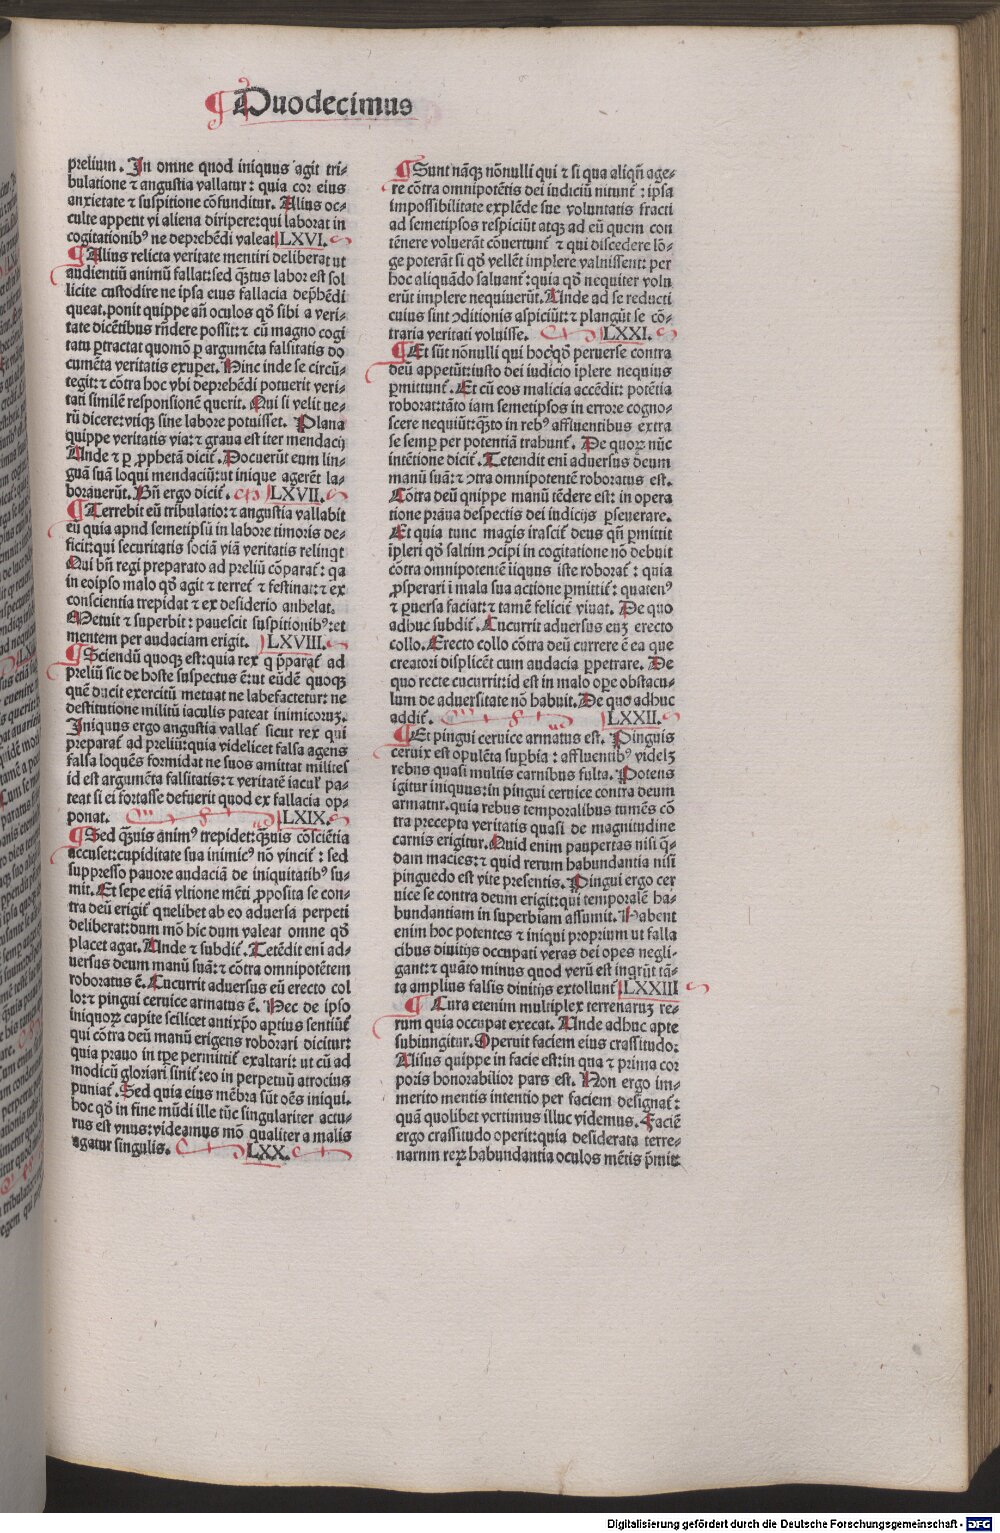 ¶ Duodecimus
prelium. In omne quod iniquus agit tri-
bulatione ⁊ angustia vallatur: quia cor eius
anxietate ⁊ suspitione cōfunditur. Alius oc-
culte appetit vi aliena diripere: qui laborat in
cogitationibꝰ ne deprehēdi valeat LXVI.
¶ Alius relicta veritate mentiri deliberat ut
audientiū animū fallat: sed q̄ꝫtus labor est sol
licite custodire ne ipsa eius fallacia dep̄hēdi
queat. ponit quippe añ oculos qđ sibi a veri-
tate dicētibus rñdere possit: ⁊ cū magno cogi
tatu ꝑtractat quomō ꝑ argumēta falsitatis do
cumēta veritatis exuꝑet. Hinc inde se circū-
tegit: ⁊ cōtra hoc vbi deprehēdi potuerit veri-
tati similē responsionē querit. Qui si velit ue-
rū dicere: vtiqꝫ sine labore potuisset. Plana
quippe veritatis via: ⁊ graua est iter mendacij
Unde ⁊ ꝑ ꝓphetā dicit̄. Docuerūt eum lin-
guā suā loqui mendaciū: ut inique agerēt la-
borauerūt. Bñ ergo dicit̄. LXVII.
¶ Terrebit eū tribulatio: ⁊ angustia vallabit
eū quia apud semetipsū in labore timoris de-
ficit: qui securitatis sociā viā veritatis relinq̄t
Qui bñ regi preparato ad preliū cōparat̄: qa
in eoipso malo qđ agit ⁊ terret̄ ⁊ festinat: ⁊ ex
conscientia trepidat ⁊ ex desiderio anhelat.
Metuit ⁊ superbit: pauescit suspitionibꝰ: et
mentem per audaciam erigit. LXVIII.
¶ Sciendū quoqꝫ est: quia rex q p̄parat̄ ad
preliū sic de hoste suspectus ē: ut eūdē quoqꝫ
quē ducit exercitū metuat ne labefactetur: ne
destitutione militū iaculis pateat inimicoꝝ.
Iniquus ergo angustia vallat̄ sicut rex qui
preparat̄ ad preliū: quia videlicet falsa agens
falsa loquēs formidat ne suos amittat milites
id est argumēta falsitatis: ⁊ veritatē iacul̄ pa-
teat si ei fortasse defuerit quod ex fallacia op-
ponat. LXIX.
¶ Sed q̄ꝫuis animꝰ trepidet: q̄ꝫuis cōsciētia
accuset: cupiditate sua inimicꝰ nō vincit̄: sed
suppresso pauore audaciā de iniquitatibꝰ su-
mit. Et sepe etiā vltione mēti ꝓposita se con-
tra deū erigit̄ quelibet ab eo aduersa perpeti
deliberat: dum mō hic dum valeat omne qđ
placet agat. Unde ⁊ subdit̄. Tetēdit eni ad-
uersus deum manū suā: ⁊ cōtra omnipotētem
roboratus ē. Cucurrit aduersus eū erecto col
lo: ⁊ pingui ceruice armatus ē. Hec de ipso
iniquoꝝ capite scilicet antixp̄o aꝑtius sentiūt̄
qui cōtra deū manū erigens roborari dicitur:
quia prauo in tp̄e permittit̄ exaltari: ut cū ad
modicū gloriari sinit̄: eo in perpetuū atrocius
puniat̄. Sed quia eius mēbra sūt oēs iniqui.
hoc qđ in fine mūdi ille tūc singulariter actu-
rus est vnus: videamus mō qualiter a malis
agatur singulis. LXX.
¶ Sunt nāqꝫ nōnulli qui ⁊ si qua aliqñ age-
re cōtra omnipotētis dei iudiciū nitunt̄: ipsa
impossibilitate explēde sue voluntatis fracti
ad semetipsos respiciūt atqꝫ ad eū quem con
tēnere voluerāt cōuertunt̄ ⁊ qui discedere lō-
ge poterāt si qđ vellēt implere valuissent: per
hoc aliquādo saluant̄: quia qđ nequiter volu
erūt implere nequiuerūt. Unde ad se reducti
cuius sint ꝯditionis aspiciūt: ⁊ plangūt se cō-
traria veritati voluisse. LXXI.
¶ Et sūt nōnulli qui hoc qđ peruerse contra
deū appetūt: iusto dei iudicio īplere nequius
ꝑmittunt̄. Et cū eos malicia accēdit: potētia
roborat: tāto iam semetipsos in errore cogno-
scere nequiūt: q̄ꝫto in rebꝰ affluentibus extra
se semꝑ per potentiā trahunt̄. De quoꝝ nūc
intētione dicit̄. Tetendit eni aduersus deum
manū suā: ⁊ ꝯtra omnipotentē roboratus est.
Cōtra deū quippe manū tēdere est: in opera
tione praua despectis dei iudicijs ꝑseuerare.
Et quia tunc magis irascit̄ deus qñ ꝑmittit
īpleri qđ saltim ꝯcipi in cogitatione nō debuit
cōtra omnipotentē īiquus iste roborat̄: quia
ꝓsperari ī mala sua actione ꝑmittit̄: quatenꝰ
⁊ ꝑuersa faciat: ⁊ tamē felicit̄ viuat. De quo
adhuc subdit̄. Cucurrit aduersus euꝫ erecto
collo. Erecto collo cōtra deū currere ē ea que
creatori displicēt cum audacia ꝑpetrare. De
quo recte cucurrit: id est in malo oꝑe obstacu-
lum de aduersitate nō habuit. De quo adhuc
addit̄. LXXII.
¶ Et pingui ceruice armatus est. Pinguis
ceruix est opulēta suꝑbia: affluentibꝰ videlꝫ
rebus quasi multis carnibus fulta. Potens
igitur iniquus: in pingui ceruice contra deum
armatur. quia rebus temporalibus tumēs cō
tra precepta veritatis quasi de magnitudine
carnis erigitur. Quid enim paupertas nisi q̄-
dam macies: ⁊ quid rerum habundantia nisi
pinguedo est vite presentis. Pingui ergo cer
uice se contra deum erigit: qui temporalē ha-
bundantiam in superbiam assumit. Habent
enim hoc potentes ⁊ iniqui proprium ut falla
cibus diuitijs occupati veras dei opes negli-
gant: ⁊ quāto minus quod verū est inqrūt tā-
ta amplius falsis diuitijs extollunt̄ LXXIII
¶ Cura etenim multiplex terrenaruꝫ re-
rum quia occupat execat. Unde adhuc apte
subiungitur. Operuit faciem eius crassitudo:
Uisus quippe in facie est: in qua ⁊ prima cor
poris honorabilior pars est. Non ergo im-
merito mentis intentio per faciem designat̄:
quā quolibet vertimus illuc videmus. Faciē
ergo crassitudo operit: quia desiderata terre-
narum reꝝ habundantia oculos mētis p̄mit
Digitalisierung gefördert durch die Deutsche Forschungsgemeinschaft - DFG